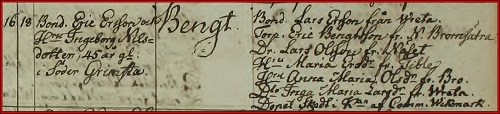 16 18 Bond. Eric Ersson och
Hru Ingeborg Nils-
dotter, 45 år gl.
i Söder Grimsta.
Bengt.
Bond. Lars Ersson från Wreta.
Torp. Eric Bengtsson fr. N. Bromsätra
Dr. Lars Olsson fr. Näset
Hru Maria Ersdr. fr. Tible
Pru Anna Maria Olsdr. fr. Bro.
Pig. Inga Maria Larsdr. fr. Wreta.
Döpet Skedt i af Comm. Widmark.